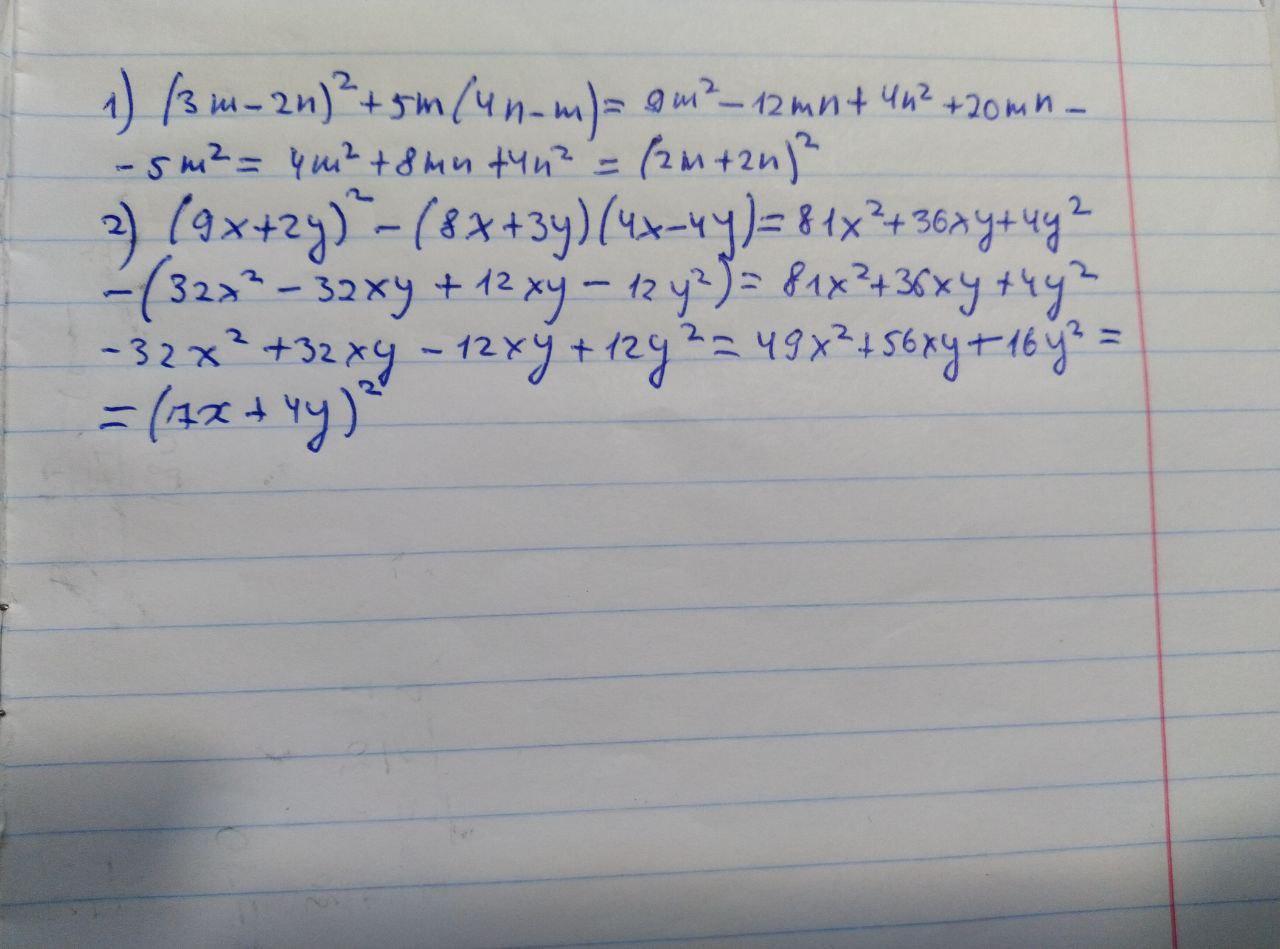 1) (3m-2n)²+5m(4n-m)= 9m²-12mn+4n²+20mn-
-5m²= 4m²+8mn+4n² = (2m+2n)²
2) (9x+2y)²-(8x+3y)(4x-4y)=81x²+36xy+4y²
-(32x²-32xy+12xy-12y²)= 81x²+36xy+4y²
-32x²+32xy-12xy+12y²=49x²+56xy+16y²=
=(7x+4y)²